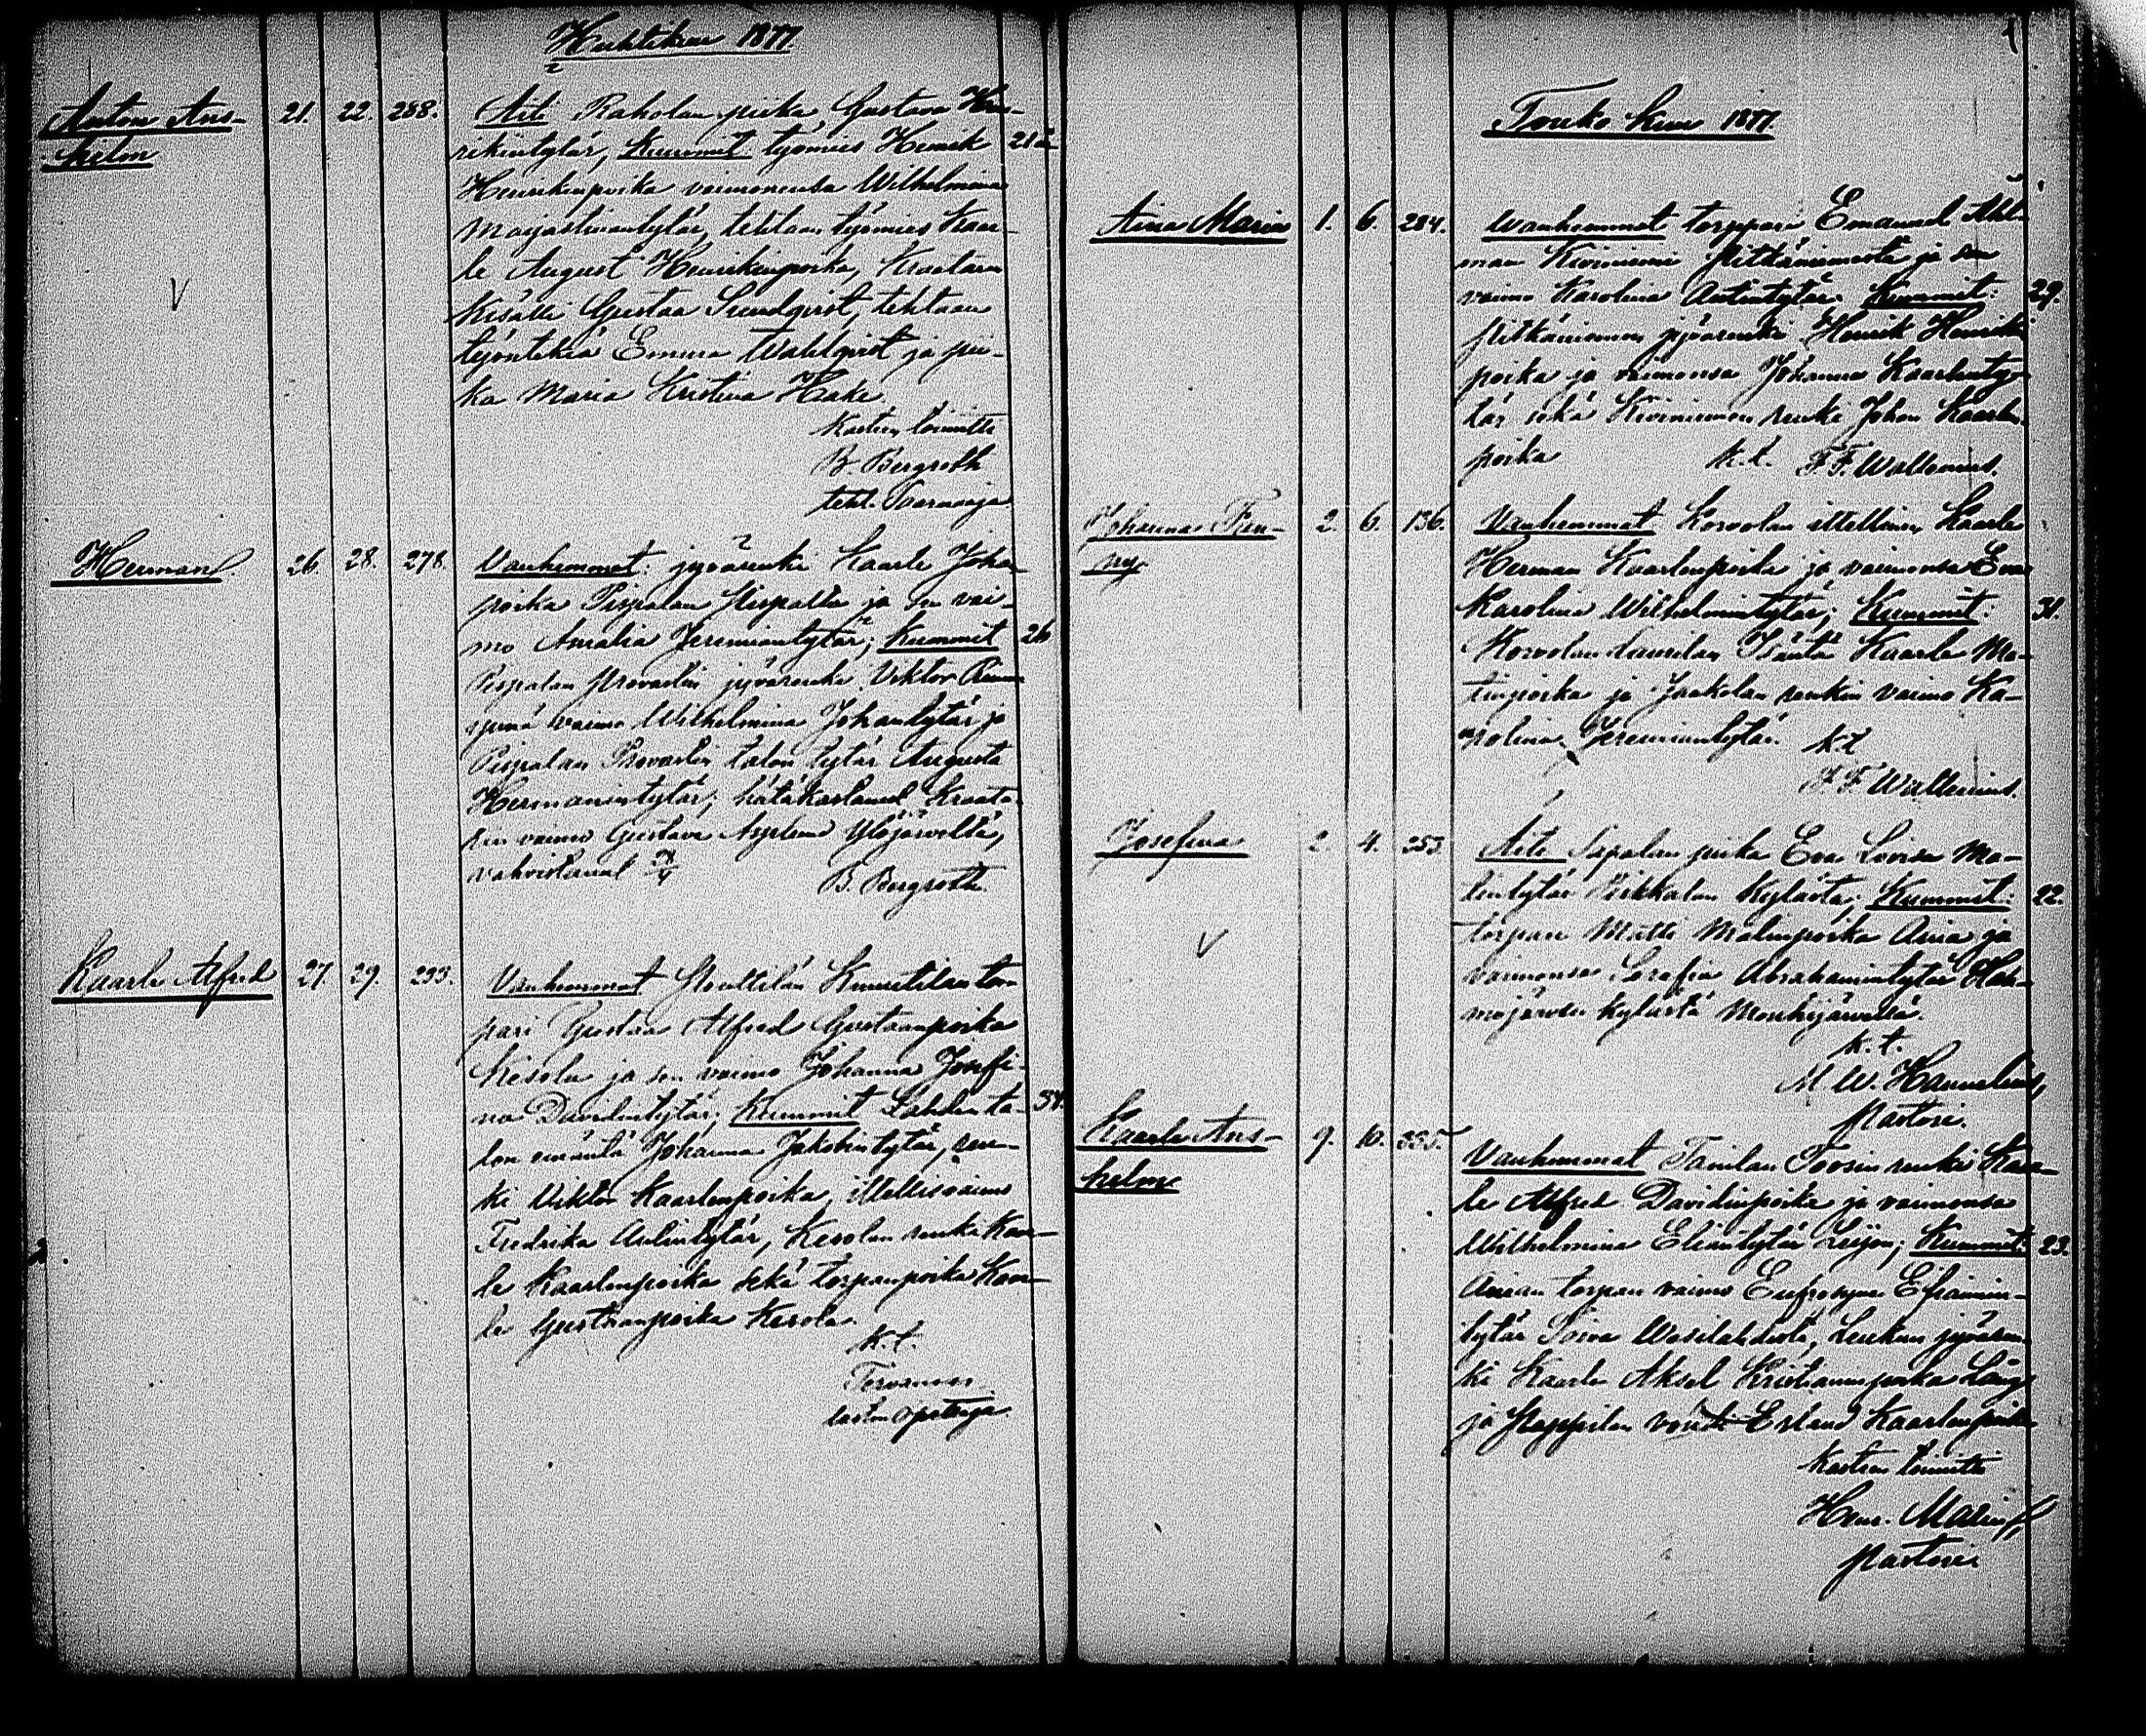 Huhtikuu 1877
Anton Ans-
helm
21. 22. 288.
Äiti Raholan piika Gustava Hen-
rikintytär, Kummit työmies Henrik
21 ä
Henrikinpoika vaimonensa Wilhelmina
Maijastiinantytär, tehtaan työmies Kaar-
le August Henrikinpoika, Kraatarin
Kisälli Gustaa Sundqvist, tehtaan
työntekiä Emma Wahlqvist ja pii-
ka Maria Kristina Hake.
Kasteen toimitti
B. Bergroth
teht. Saarnaaja
Herman
26. 28. 278.
Vanhemmat: jyvärenki Kaarle Johan
poika Pispalan Pispalta ja sen vai-
mo Amalia Jeremiantytär; Kummit
26
Pispalan Provastin jyvärenki Viktor
vaimo Wilhelmina Johantytär ja
Pispalan Provastin talon tytär Augusta
Hermanintytär; hätäkastanut Kraata-
rin vaimo Gustava Asplund Ylöjärveltä,
vahvistanut
B. Bergroth.
Kaarle Alfred
27. 29. 233.
Vanhemmat Knuutilan torp-
pari Gustaa Alfred Gustaanpoika
Kesola ja sen vaimo Johanna Josefi-
na Davidintytär; Kummit Lahden ta-
34.
lon emäntä Johanna Jakobintytär, ren-
ki Viktor Kaarlenpoika, itellisvaimo
Fredrika Antintytär, Kesolan renki Kaar-
le Kaarlenpoika sekä torpanpoika Kaar-
le Gustaanpoika Kesola.
k. t.
Tervanen
lasten opettaja.
Touko kuu 1877
Aina Maria
1. 6. 284.
Wanhemmat torppari Emanuel Ahl-
man Kiviniemi Pitkäniemestä ja sen
vaimo Karolina Antintytär. Kummit:
29.
Pitkäniemen jyvärenki Henrik Henrikin
poika ja vaimonsa Johanna Kaarlenty-
tär sekä Kiviniemen renki Johan Kaarlen
poika
k. t. F. F. Wallenius.
Johanna Fan-
ny
2. 6. 136.
Vanhemmat Korvolan itellinen Kaarle
Herman Kaarlenpoika ja vaimonsa Eva
Karolina Wilhelmintytär; Kummit:
31.
Korvolan Laurilan Isäntä Kaarle Ma-
tinpoika ja Jaakolan renkin vaimo Ka-
rolina Jeremiantytär.
k. t.
F. F. Wallenius.
Josefina
2. 4. 353.
Äiti Sapalan piika Eva Lovisa Ma-
tintytär Pirkkalan Kylästä; Kummit:
22.
torpari Matti Matinpoika Ania ja
vaimonsa Serafia Abrahamintytär
Mouhijärveltä.
k. t.
M W. Hannelius,
Pastori.
Kaarle Ans-
helm
9. 10. 335.
Vanhemmat Tanilan Toosin renki Kaar-
le Alfred Davidinpoika ja vaimonsa
Wilhelmina Eliantytär Leijon; Kummit:
23.
Anian torpan vaimo Eufrosyne Efraimin-
tytär Toiva Wesilahdesta, Leukun jyvären-
ki Kaarle Aksel Kristianinpoika Lång
ja Reppilän vouti Erland Kaarlenpoika
Kasteen toimitti
Henr. Malin
Pastori